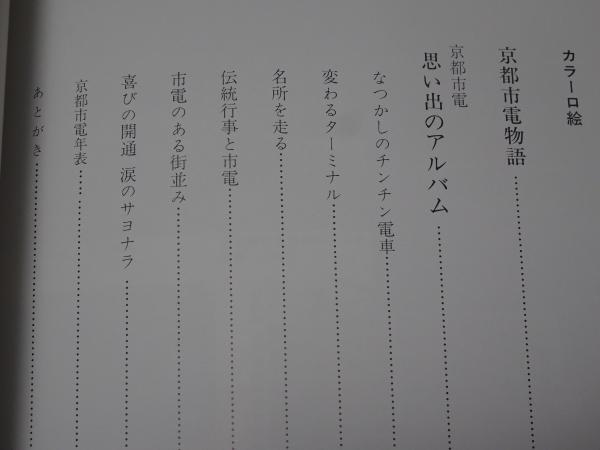 カラー口絵
京都市電物語
京都市電
思い出のアルバム
なつかしのチンチン電車
変わるターミナル
名所を走る
伝統行事と市電
市電のある街並み
喜びの開通 涙のサヨナラ
京都市電年表
あとがき